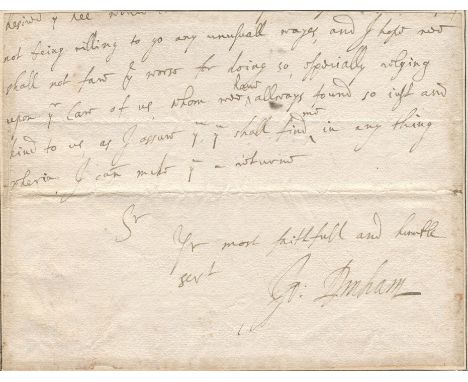 desired y hee would
not being willing to go any unusuall wayes and I hope wee
shall not fare yᵉ worse for doing so, especially relying
upon yʳ Care of us, whom wee have allways found so iust and
kind to us as I assure yᵘ yᵘ shall find me in any thing
wherin I can make yᵘ a returne
Sʳ
Yʳ most faithfull and humble
servᵗ
Jo: Denham